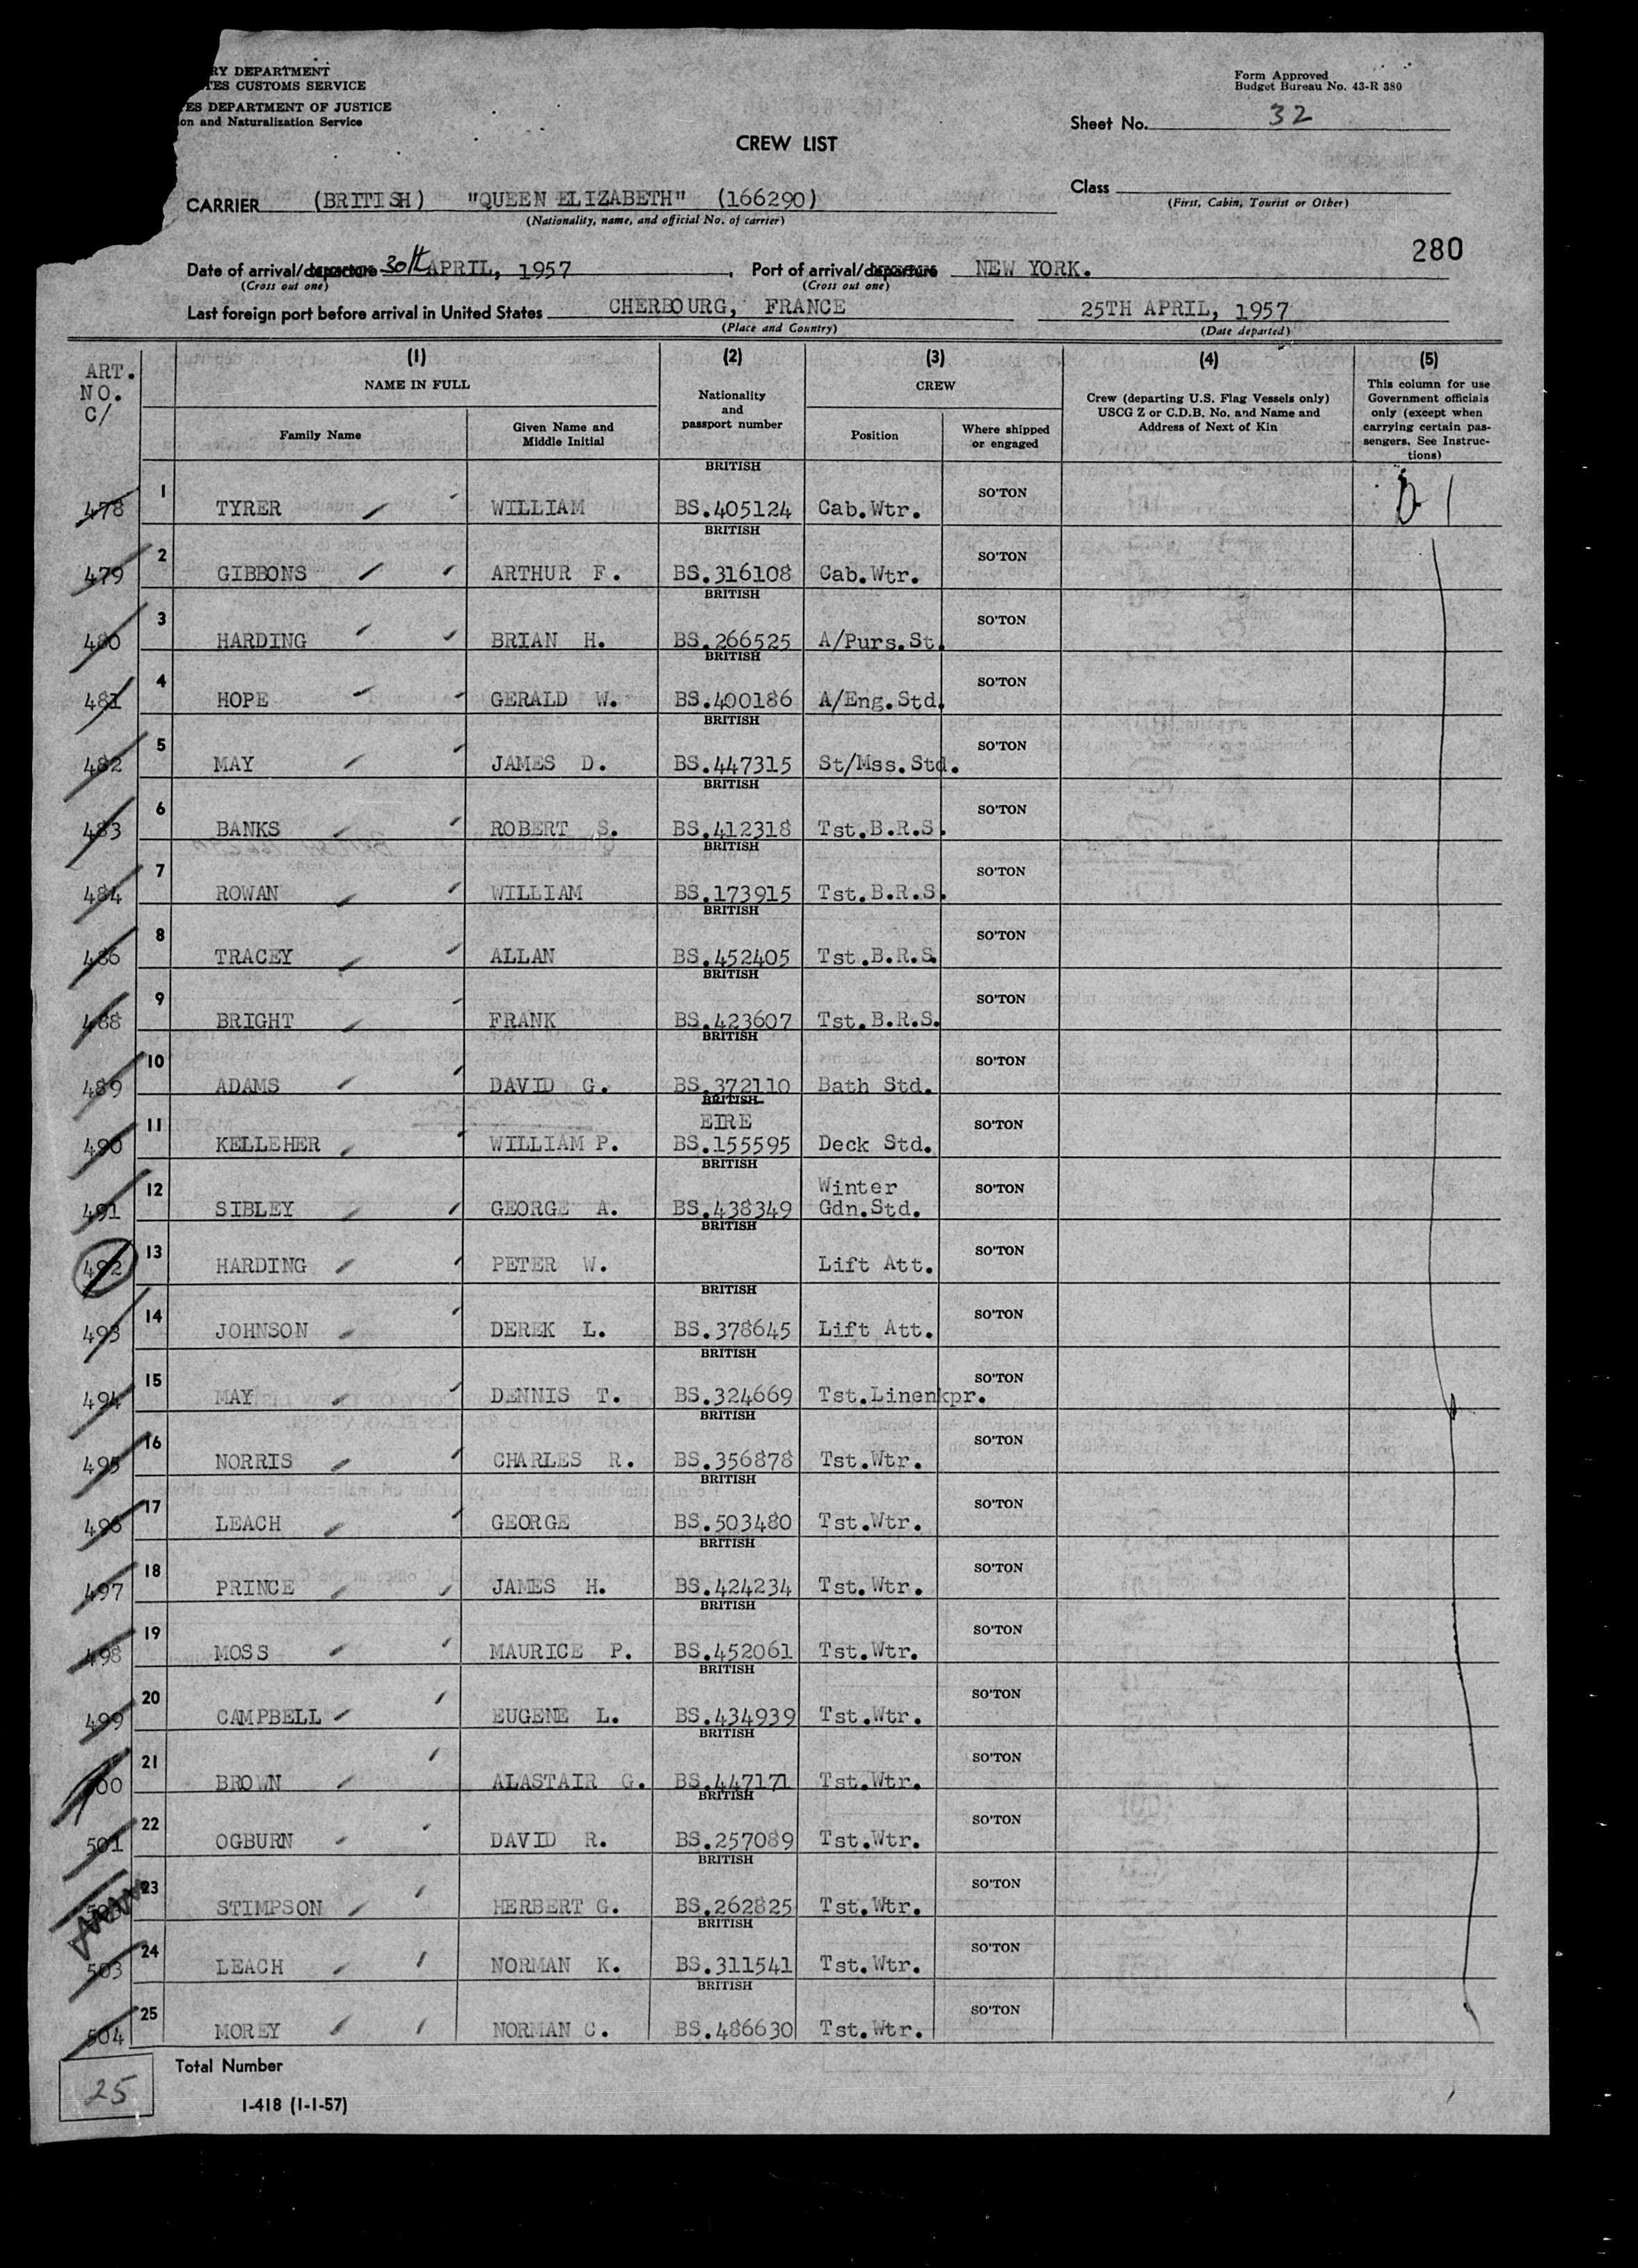 RY DEPARTMENT
TES CUSTOMS SERVICE
ES DEPARTMENT OF JUSTICE
on and Naturalization Service
Form Approved
Budget Bureau No. 43-R 380
Sheet No. 32
CREW LIST
Class
(First, Cabin, Tourist or Other)
CARRIER (BRITISH) "QUEEN ELIZABETH" (166290)
(Nationality, name, and official No. of carrier)
280
Date of arrival/departure 30th APRIL, 1957, Port of arrival/departure NEW YORK.
(Cross out one) (Cross out one)
Last foreign port before arrival in United States CHERBOURG, FRANCE 25TH APRIL, 1957
(Place and Country) (Date departed)
ART. NO. C/
(1) (2) (3) (4) (5)
NAME IN FULL
Family Name
Given Name and Middle Initial
Nationality and passport number
CREW
Position
Where shipped or engaged
Crew (departing U.S. Flag Vessels only) USCG Z or C.D.B. No. and Name and Address of Next of Kin
This column for use Government officials only (except when carrying certain passengers. See Instructions)
478 1 TYRER WILLIAM BRITISH BS.405124 Cab.Wtr. SO'TON D 1
479 2 GIBBONS ARTHUR F. BRITISH BS.316108 Cab.Wtr. SO'TON
480 3 HARDING BRIAN H. BRITISH BS.266525 A/Purs.St. SO'TON
481 4 HOPE GERALD W. BRITISH BS.400186 A/Eng.Std. SO'TON
482 5 MAY JAMES D. BRITISH BS.447315 St/Mss.Std. SO'TON
483 6 BANKS ROBERT S. BRITISH BS.412318 Tst.B.R.S. SO'TON
484 7 ROWAN WILLIAM BRITISH BS.173915 Tst.B.R.S. SO'TON
486 8 TRACEY ALLAN BRITISH BS.452405 Tst.B.R.S. SO'TON
488 9 BRIGHT FRANK BRITISH BS.423607 Tst.B.R.S. SO'TON
489 10 ADAMS DAVID G. BRITISH BS.372110 Bath Std. SO'TON
490 11 KELLEHER WILLIAM P. BRITISH EIRE BS.155595 Deck Std. SO'TON
491 12 SIBLEY GEORGE A. BRITISH BS.438349 Winter Gdn.Std. SO'TON
492 13 HARDING PETER W. BRITISH Lift Att. SO'TON
493 14 JOHNSON DEREK L. BRITISH BS.378645 Lift Att. SO'TON
494 15 MAY DENNIS T. BRITISH BS.324669 Tst.Linenkpr. SO'TON
495 16 NORRIS CHARLES R. BRITISH BS.356878 Tst.Wtr. SO'TON
496 17 LEACH GEORGE BRITISH BS.503480 Tst.Wtr. SO'TON
497 18 PRINCE JAMES H. BRITISH BS.424234 Tst.Wtr. SO'TON
498 19 MOSS MAURICE P. BRITISH BS.452061 Tst.Wtr. SO'TON
499 20 CAMPBELL EUGENE L. BRITISH BS.434939 Tst.Wtr. SO'TON
500 21 BROWN ALASTAIR G. BRITISH BS.447171 Tst.Wtr. SO'TON
501 22 OGBURN DAVID R. BRITISH BS.257089 Tst.Wtr. SO'TON
23 STIMPSON HERBERT G. BRITISH BS.262825 Tst.Wtr. SO'TON
503 24 LEACH NORMAN K. BRITISH BS.311541 Tst.Wtr. SO'TON
504 25 MOREY NORMAN C. BRITISH BS.486630 Tst.Wtr. SO'TON
25 Total Number
I-418 (1-1-57)